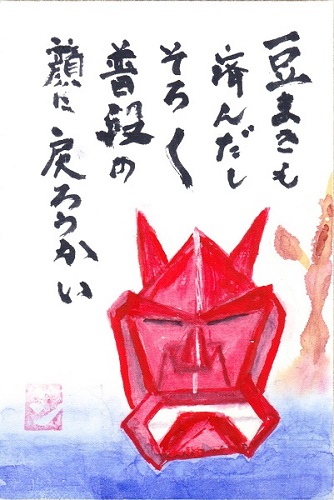 豆まきも
済んだし
そろ〱
普段の
顔に戻ろうかい